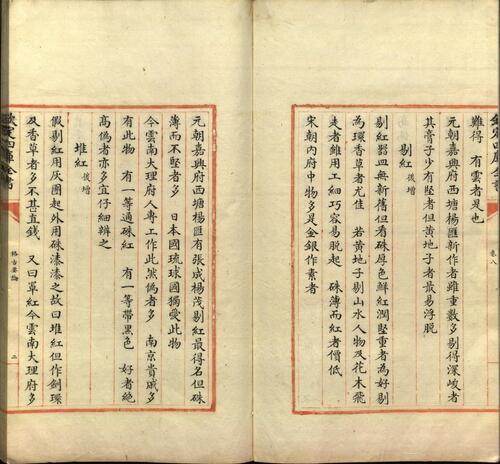 難得有雲者是也
元朝嘉興府西塘楊匯新作者雖重數多剔得深峻者
其膏子少有堅者但黃地子者最易浮脫
剔紅後增
剔紅器皿無新舊但看硃厚色鮮紅潤堅重者為好剔
為環香草者尤佳 若黃地子剔山水人物及花木飛
走者雖用工細巧容易脫起 硃薄而紅者價低
宋朝內府中物多是金銀作素者
卷八
欽定四庫全書
格古要論
二
元朝嘉興府西塘楊匯有張成楊茂剔紅最得名但硃
薄而不堅者多 日本國琉球國獨愛此物
今雲南大理府人專工作此然偽者多 南京貴戚多
有此物 有一等通硃紅 有一等帶黑色 好者絶
高偽者亦多宜仔細辨之
堆紅後增
假剔紅用灰團起外用硃漆漆之故曰堆紅但作劍環
及香草者多不甚直錢 又曰罩紅今雲南大理府多